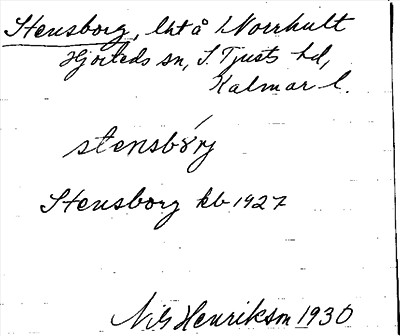 Stensborg, lht å Norrhult
Hjorteds sn, S. Tjusts hd,
Kalmar l.
stensbǫrj
Stensborg kb 1927
Nils Henrikson 1930